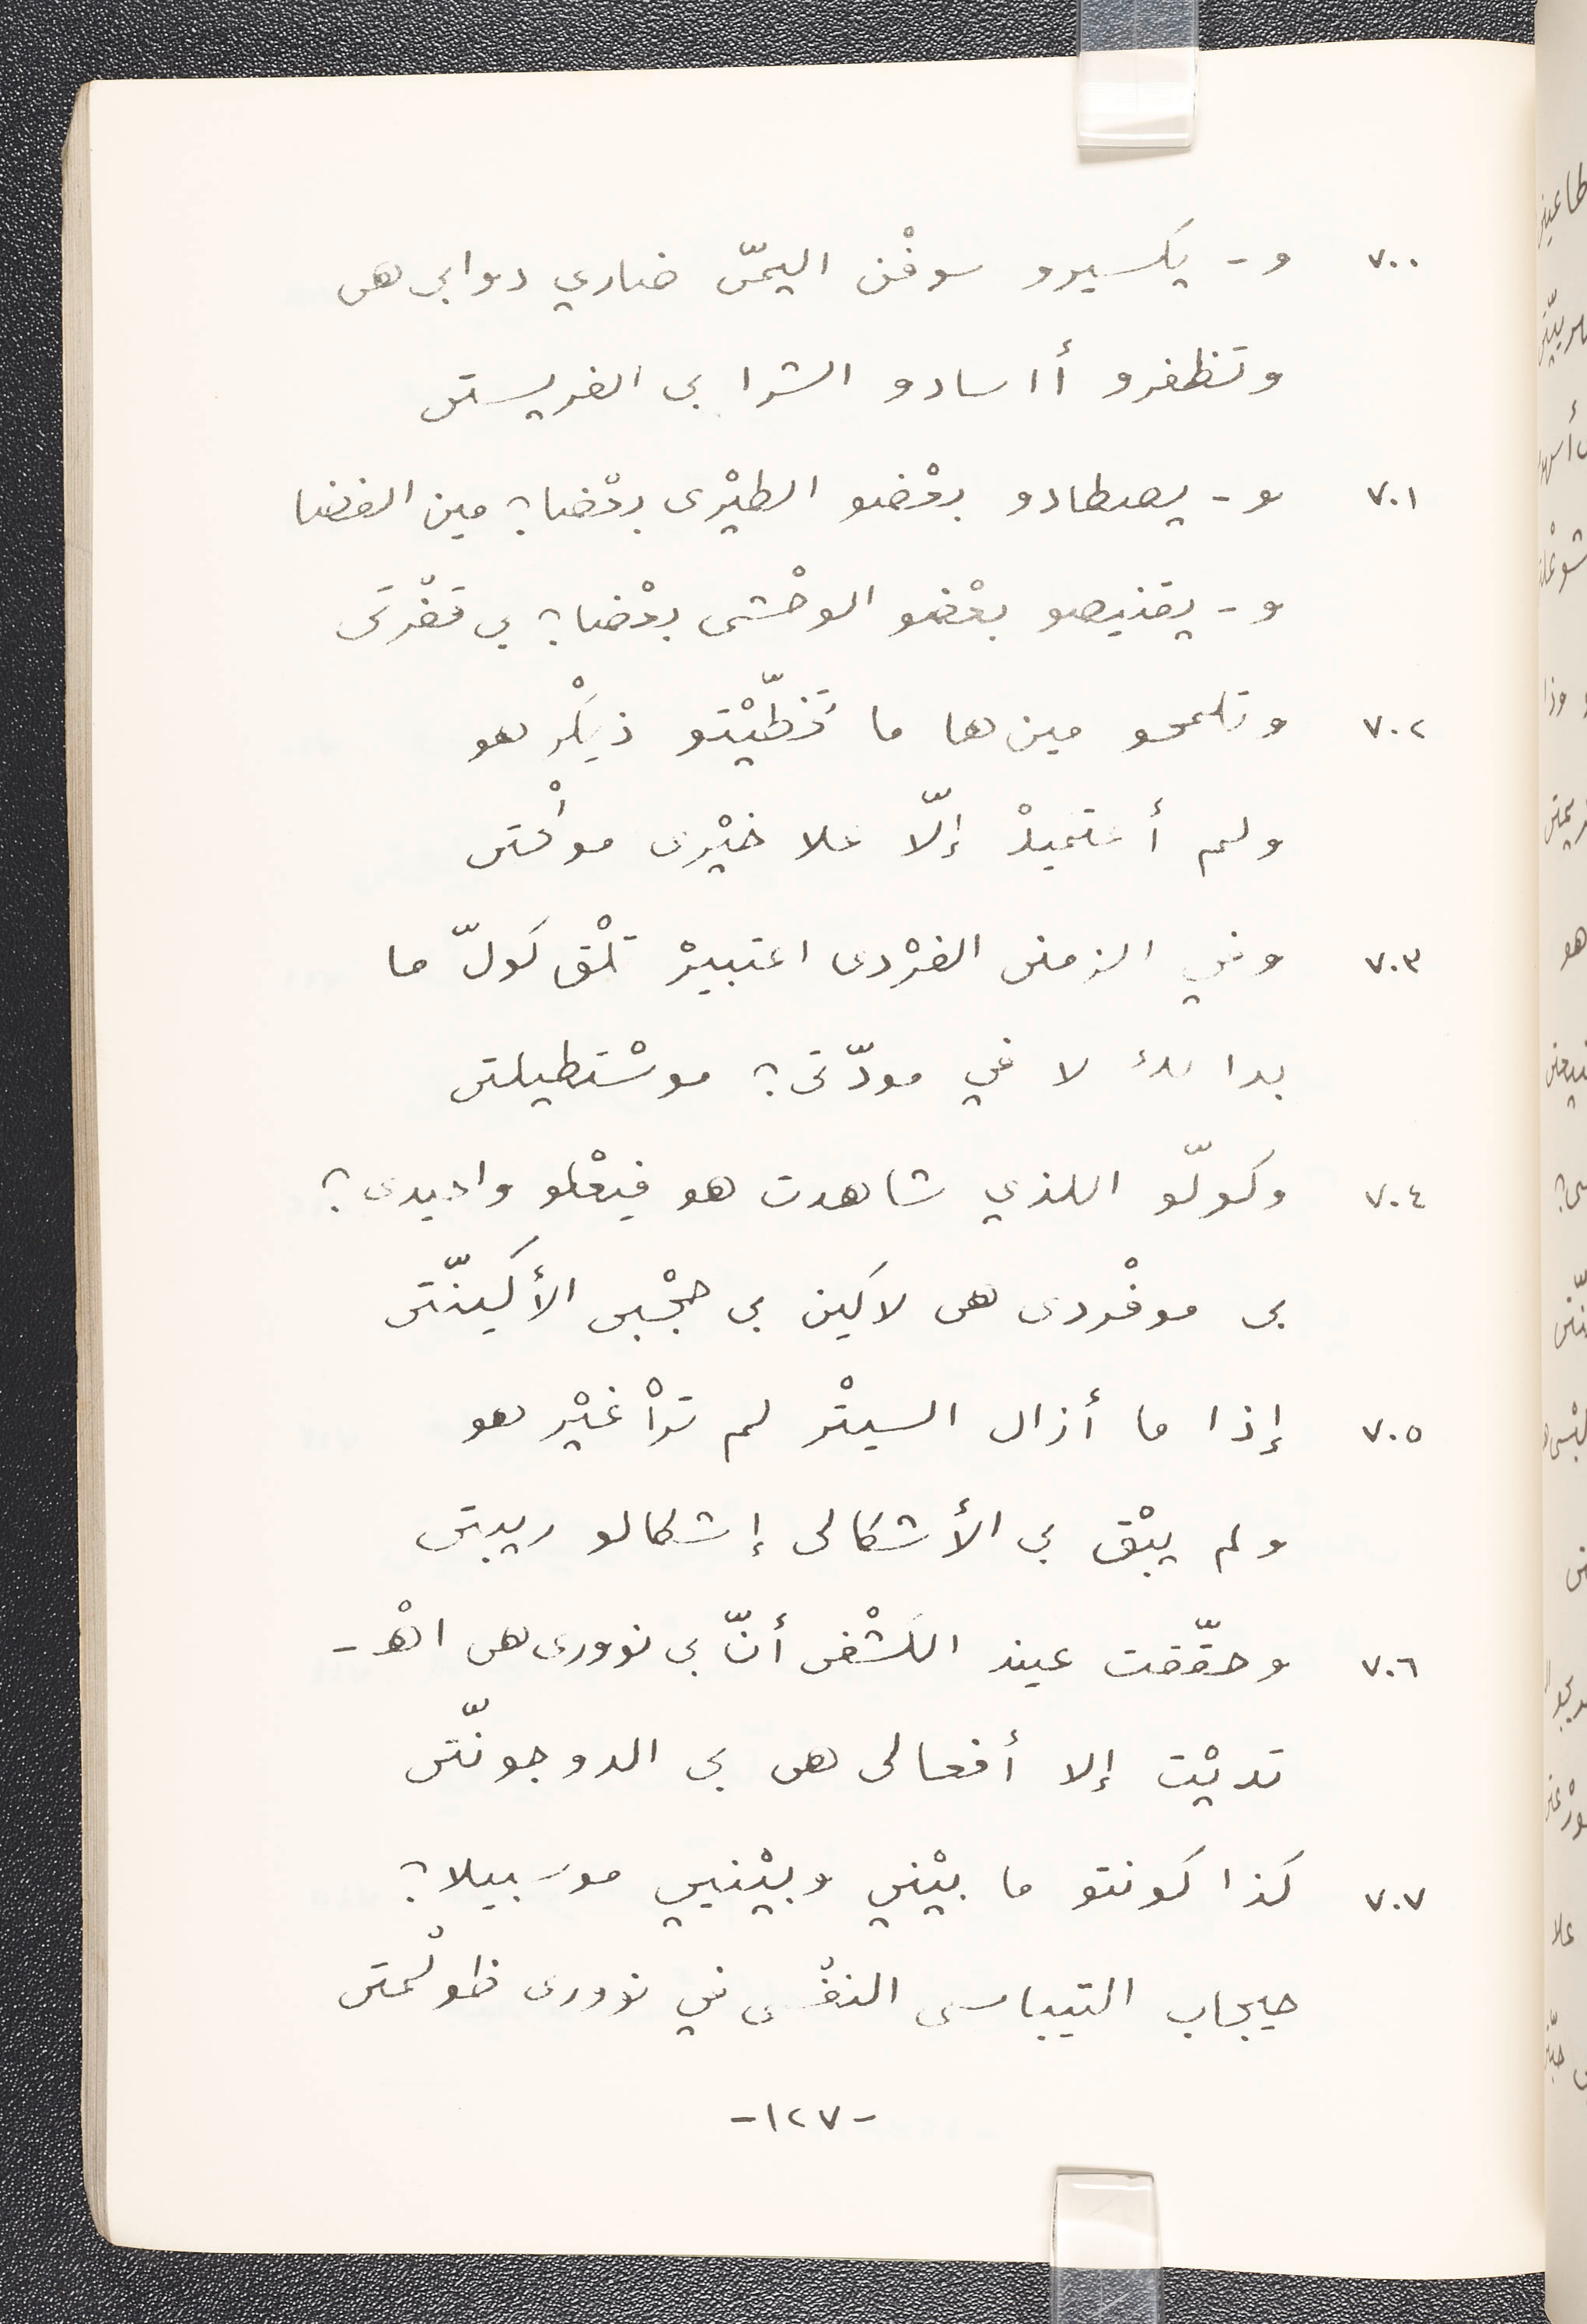 ٧٠٠ و- يكسيرو سوفْن اليمّى ضاري دوابى هى
وتظفرو أاسادو الشرا بى الفريستى
٧٠١ و- يصطادو بعْضو الطيْرى بعْضا؟ مين الفضا
و- يقنيصو بعْضو الوحْشى بعْضا؟ بي قفْرتى
٧٠٢ وتلمحو مينها ما تخطّيْتو ذيكْرهو
ولم أعتميدْ إلّا علا خيْرى مولْحتى
٧٠٣ وفي الزمنى الفرْدى اعتبيرْ تلْق كولّ ما
بدا لك لا في مودّتى؟ موسْتطيلتى
٧٠٤ وكولّو اللذي شاهدت هو فيعْلو واحيدى؟
بى موفْردى هى لاكين بى حجْبى الأكينّتى
٧٠٥ إذا ما أزال السيتْر لم ترأْ غيْرهو
ولم يبْق بى الأشكالى إشكالو ريبتى
٧٠٦ وحقّقت عيند الكشْفى أنّ بى نوورى هى اهْ-
تديْت إلا أفعالى هى بى الدوجونّتى
٧٠٧ كذا كونتو ما بيْني وبيْنيي موسبيلا؟
حيجاب التيباسى النفْسى في نوورى ظولْمتى
-١٢٧-